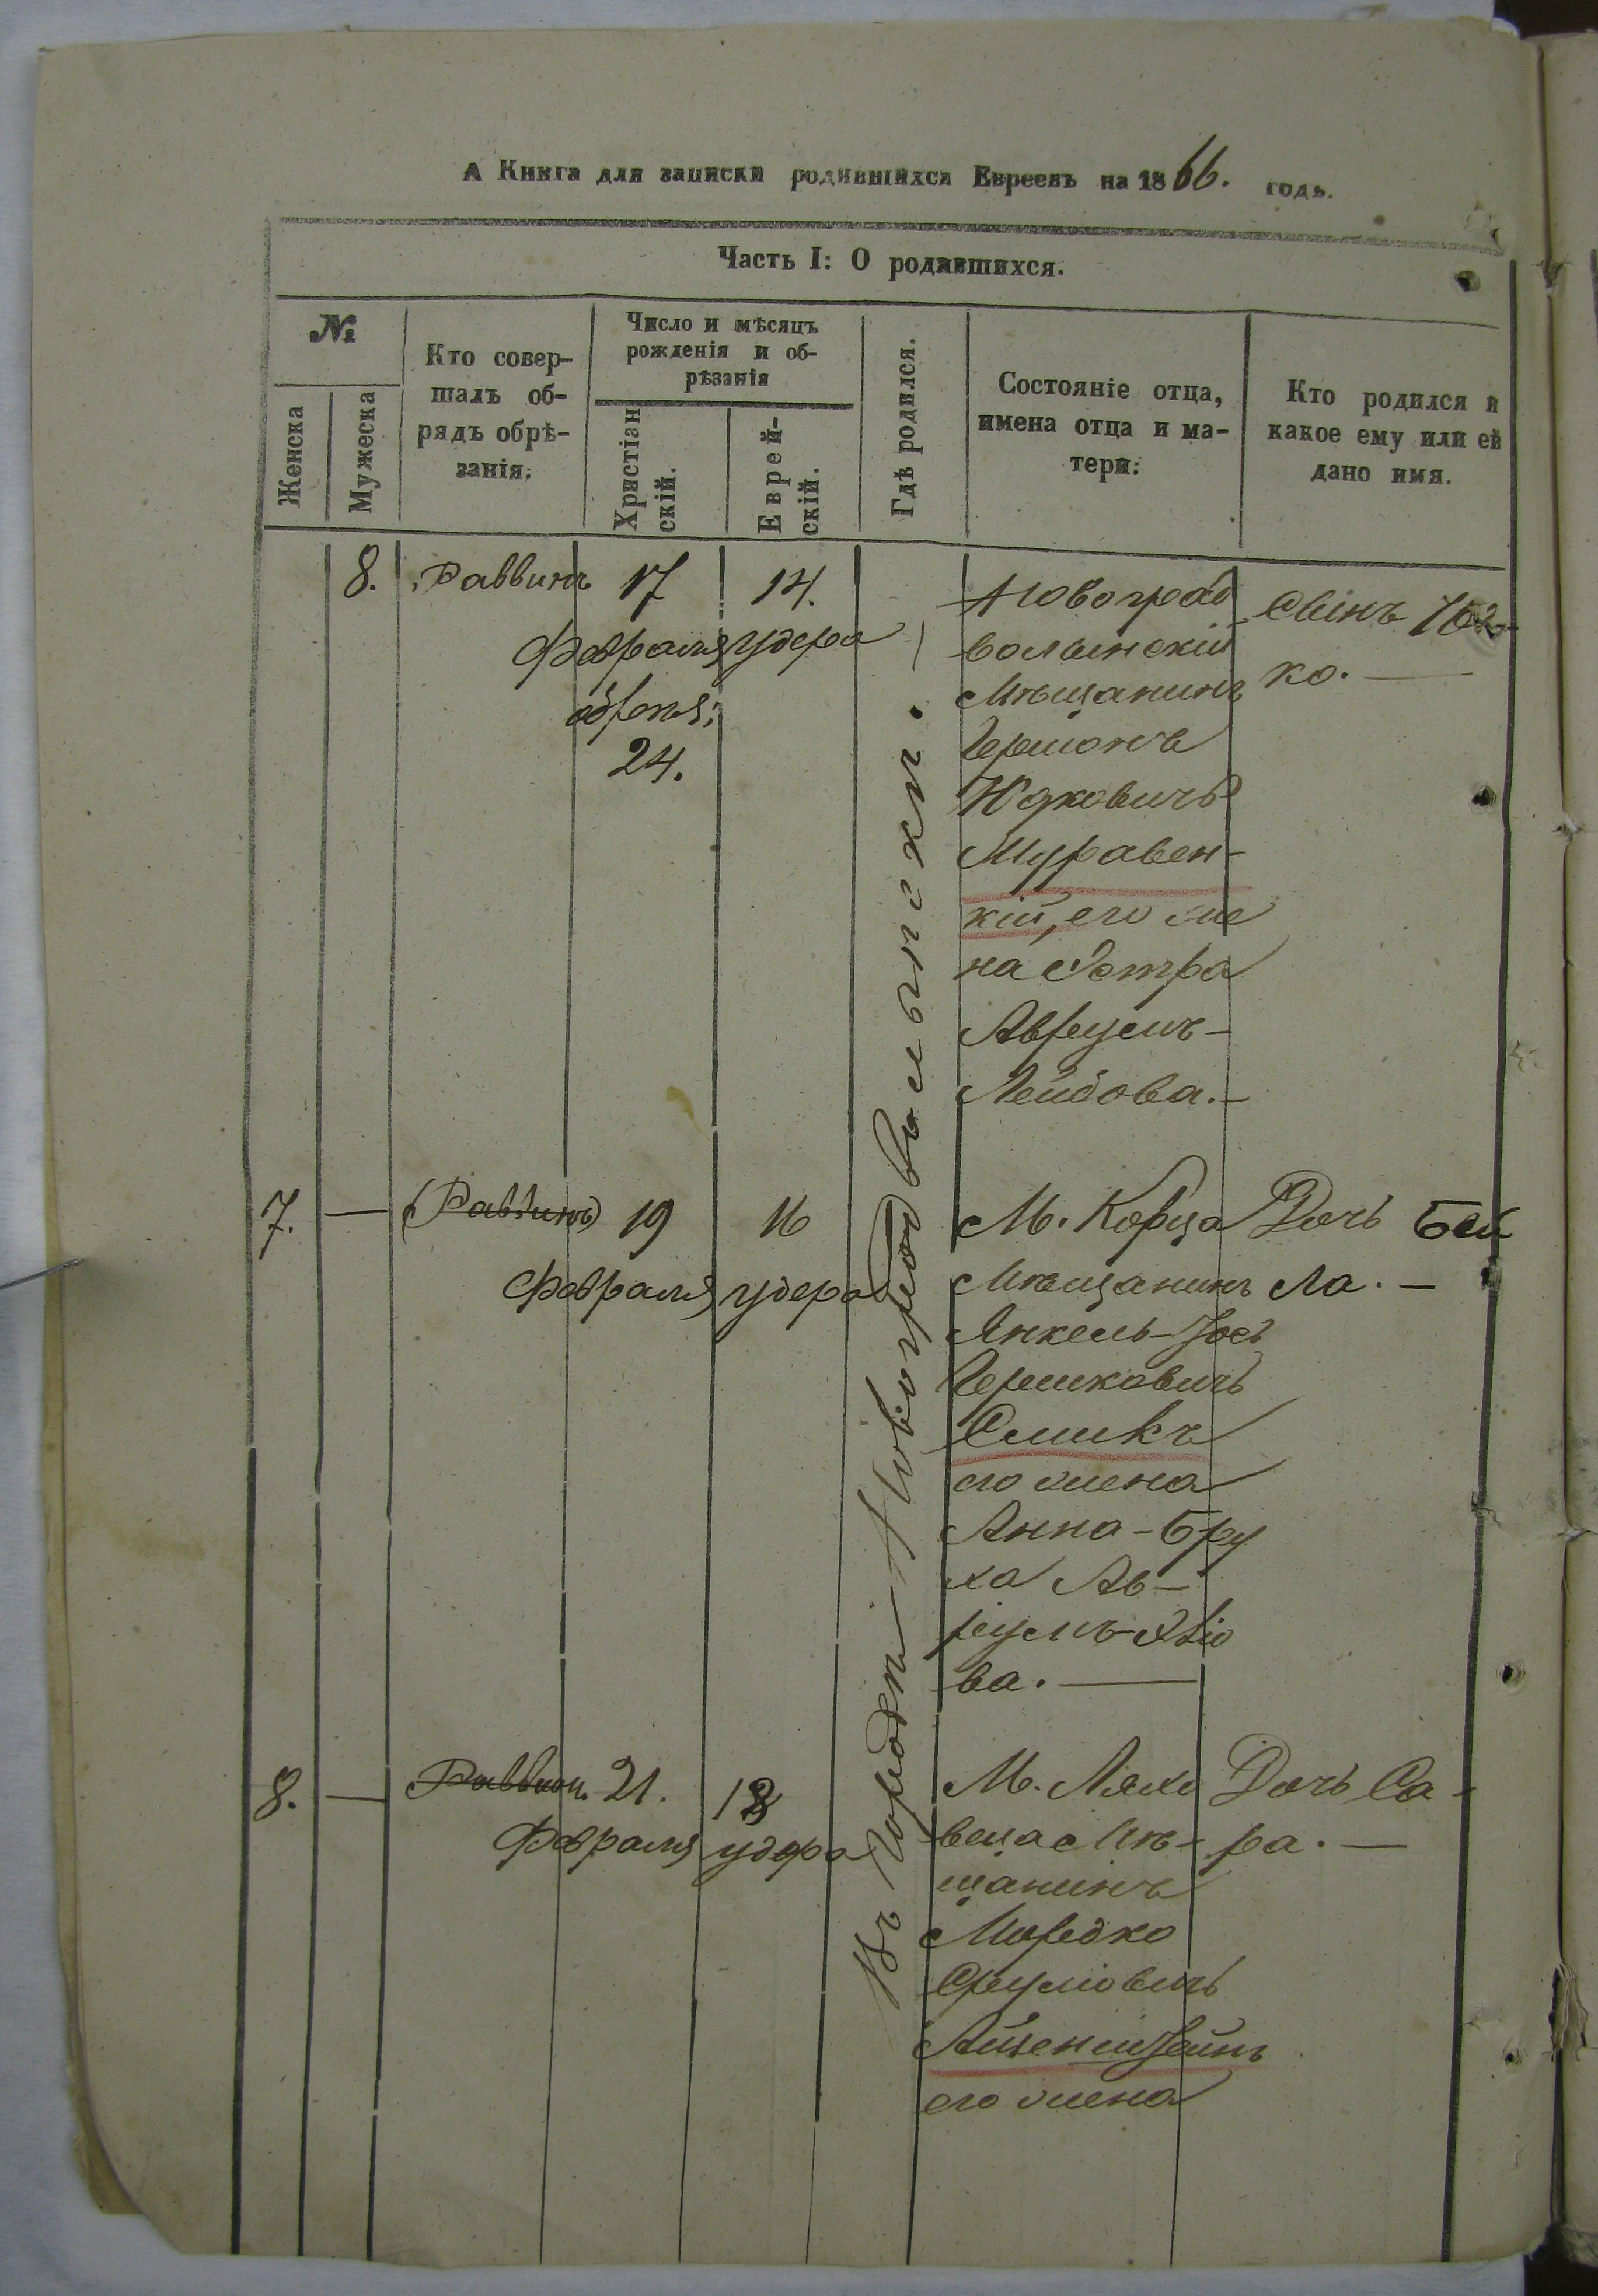 А Книга для записки родившихся Евреевъ на 1866. годъ.
Часть I: О родившихся.
№
Женска
Мужеска
Кто совер-
шалъ об-
рядъ обрѣ-
занія.
Число и мѣсяцъ
рожденія и об-
рѣзанія
Христіан
скій.
Еврей-
скій.
Гдѣ родился.
Состояніе отца,
имена отца и ма-
тери.
Кто родился и
какое ему или ей
дано имя.
Въ городѣ Новоградволынскѣ.
8. Раввинъ 17 14.
Февраля удера
24.
Новоград
волынскій
Мѣщанинъ
Гершонъ
Юдковичъ
Муравен-
кій, его же
на Эстра
Аврумъ-
Лейбова.-
Сынъ
ко.
7. — Раввинъ 19 16
Февраля удера
М. Корца
Мѣщанинъ
Янкель-Іось
Гершковичъ
Смикъ
его жена
Анна-Бру
ха Ав-
румъ-
ва.
Дочь Бей
ла. —
8. — Раввин. 21. 18
Февраля удера
М. Ляхо
веца Мѣ-
щанинъ
Мордко
Сруліовичъ
Айзенштейнъ
его жена
Дочь Са-
ра. —